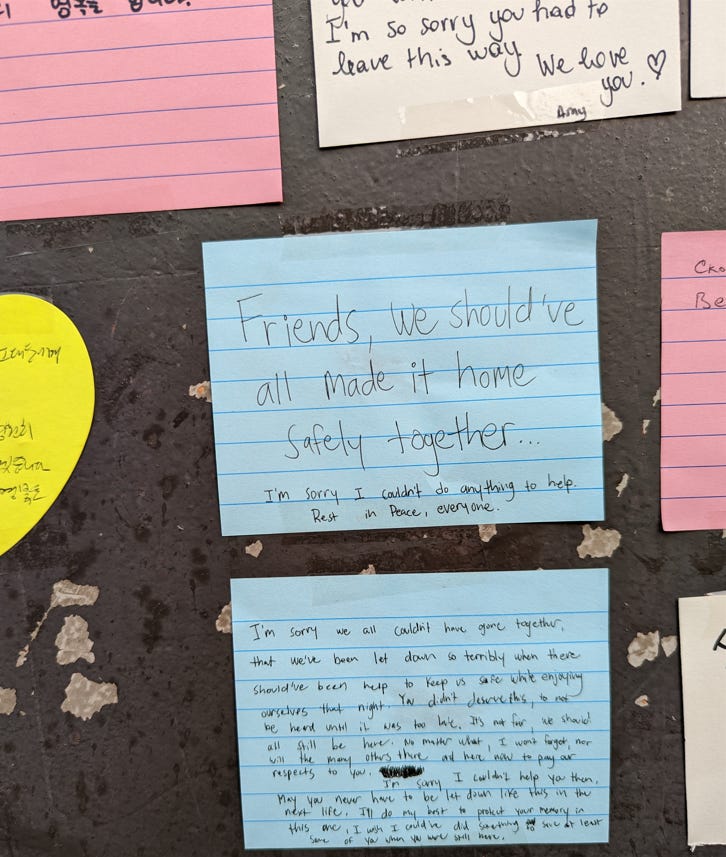 명복을 빕니다.
I'm so sorry you had to
leave this way. We love
you. ♡
Amy
Friends, we should've
all made it home
safely together...
I'm sorry I couldn't do anything to help.
Rest in Peace, everyone.
Ско
Ве
I'm sorry we all couldn't have gone together,
that we've been let down so terribly when there
should've been help to keep us safe while enjoying
ourselves that night. You didn't deserve this, to not
be heard until it was too late. It's not fair, we should
all still be here. No matter what, I won't forget, nor
will the many others there and here now to pay our
respects to you.
I'm sorry I couldn't help you then.
May you never have to be let down like this in the
next life. I'll do my best to protect your memory in
this one, I wish I could've did something to save at least
some of you when you were still here.